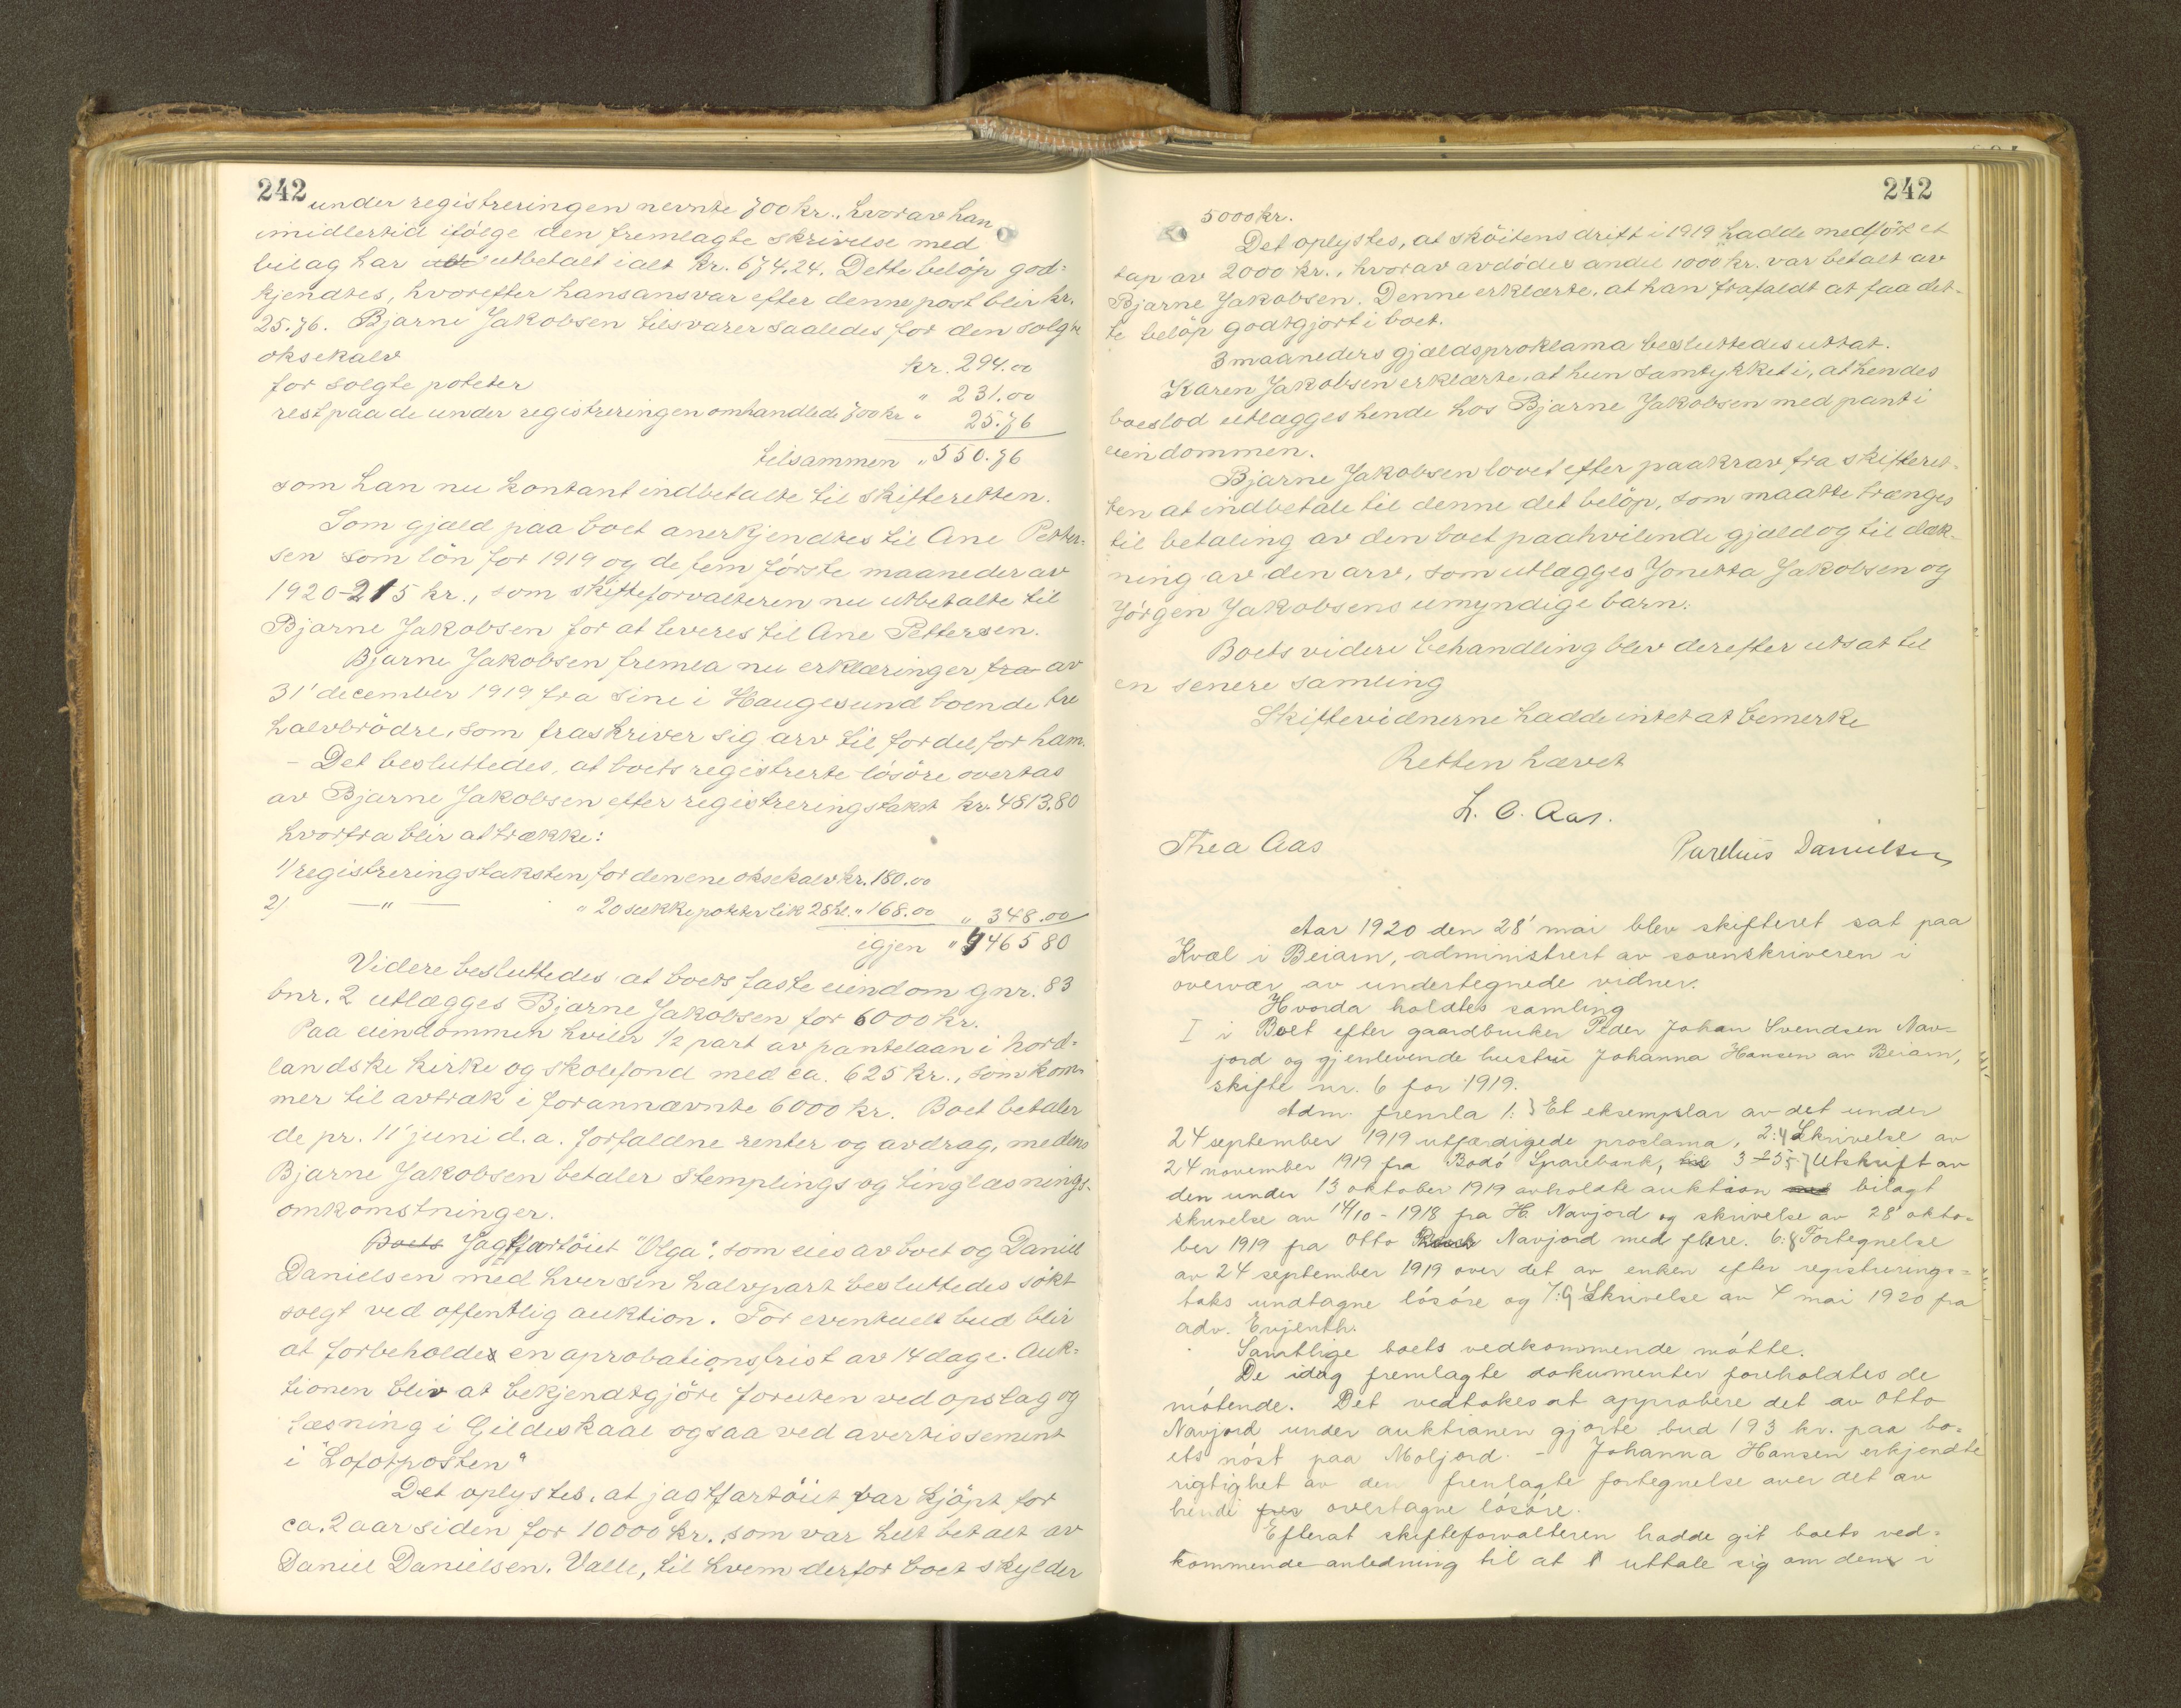 242
under registreringen nevnte 700 kr., hvorav han
imidlertid ifölge den fremlagte skrivelse med
bilag har utbetalt ialt kr. 674.24. Dette belöp god-
kjendtes, hvorefter hans ansvar efter denne post blir kr.
25.76. Bjarne Jakobsen tilsvarer saaledes for den solgte
oksekalv kr. 294.00
for solgte poteter " 231.00
rest paa de under registreringen omhandlede 700 kr " 25.76
tilsammen " 550.76
som han nu kontant indbetalte til skifteretten.
Som gjæld paa boet anerkjendtes til Ane Petter-
sen som lön for 1919 og de fem förste maaneder av
1920 - 215 kr., som skifteforvalteren nu utbetalte til
Bjarne Jakobsen for at leveres til Ane Pettersen.
Bjarne Jakobsen fremla nu erklæringer fra av
31' december 1919 fra sine i Haugesund boende tre
halvbrödre, som fraskriver sig arv til fordel for ham.
- Det besluttedes, at boets registrerte lösöre overtas
av Bjarne Jakobsen efter registreringstakst kr. 4813.80
hvorfra blir at trække:
1/ registreringstaksten for den ene oksekalv kr. 180.00
2/ —"— " 20 sække poteter lik 28 hl. " 168.00 " 348.00
igjen " 4465 80
Videre besluttedes at boets faste eiendom gnr. 83
bnr. 2 utlægges Bjarne Jakobsen for 6000 kr.
Paa eiendommen hviler 1/2 part av pantelaan i Nord-
landske kirke og skolefond med ca. 625 kr., som kom-
mer til avtræk i forannævnte 6000 kr. Boet betaler
de pr. 11' juni d.a. forfaldne renter og avdrag, medens
Bjarne Jakobsen betaler stemplings og tinglæsnings-
omkomstninger.
Boets Jagtfartöiet "Olga", som eies av boet og Daniel
Danielsen med hver sin halvpart besluttedes sökt
solgt ved offentlig auktion. For eventuelt bud blir
at forbeholdes en aprobationsfrist av 14 dage. Auk-
tionen blir at bekjendtgjöre foruten ved opslag og
læsning i Gildeskaal ogsaa ved avertissement
i "Lofotposten"
Det oplystes, at jagtfartöiet var kjöpt for
ca. 2 aar siden for 10000 kr., som var helt betalt av
Daniel Danielsen, Valle, til hvem derfor boet skylder
242
5000 kr.
Det oplystes, at sköitens drift i 1919 hadde medfört et
tap av 2000 kr., hvorav avdödes andel 1000 kr. var betalt av
Bjarne Jakobsen. Denne erklærte, at han frafaldt at faa det-
te belöp godtgjort i boet.
3 maaneders gjældsproklama besluttedes uttat.
Karen Jakobsen erklærte, at hun samtykket i, at hendes
boeslod utlægges hende hos Bjarne Jakobsen med pant i
eiendommen.
Bjarne Jakobsen lovet efter paakrav fra skifteret-
ten at indbetale til denne det belöp, som maatte trænges
til betaling av den boet paahvilende gjæld og til dæk-
ning av den arv, som utlægges Jonetta Jakobsen og
Jörgen Jakobsens umyndige barn.
Boets videre behandling blev derefter utsat til
en senere samling
Skiftevidnerne hadde intet at bemerke
Retten hævet
L. O. Aas.
Thea Aas Danielsen
Aar 1920 den 28' mai blev skifteret sat paa
Kvæl i Beiarn, administrert av sorenskriveren i
overvær av undertegnede vidner.
Hvorda holdtes samling
I i Boet efter gaardbruker Peder Johan Svendsen Nav-
jord og gjenlevende hustru Johanna Hansen av Beiarn,
skifte nr. 6 for 1919.
Adm. fremla 1: 3 Et eksemplar av det under
24 september 1919 utfærdigede proclama, 2: 4 Skrivelse av
24 november 1919 fra Bodó Sparebank, 3 Utskrift av
den under 13 oktober 1919 avholdte auktion bilagt
skrivelse av 14/10 - 1918 fra H. Navjord og skrivelse av 28' okto-
ber 1919 fra Otto Navjord med flere. 6: 8 Fortegnelse
av 24 september 1919 over det av enken efter registrerings-
taks undtagne lósóre og 7: 9 Skrivelse av 4 mai 1920 fra
adv. Evjenth.
Samtlige boets vedkommende mótte.
De idag fremlagte dokumenter foreholdtes de
mótende. Det vedtokes at approbere det av Otto
Navjord under auktionen gjorte bud 193 kr. paa bo-
ets nóst paa Moljord. - Johanna Hansen erkjendte
rigtighet av den fremlagte fortegnelse over det av
hende overtagne lósóre.
Efterat skifteforvalteren hadde git boets ved-
kommende anledning til at uttale sig om den i